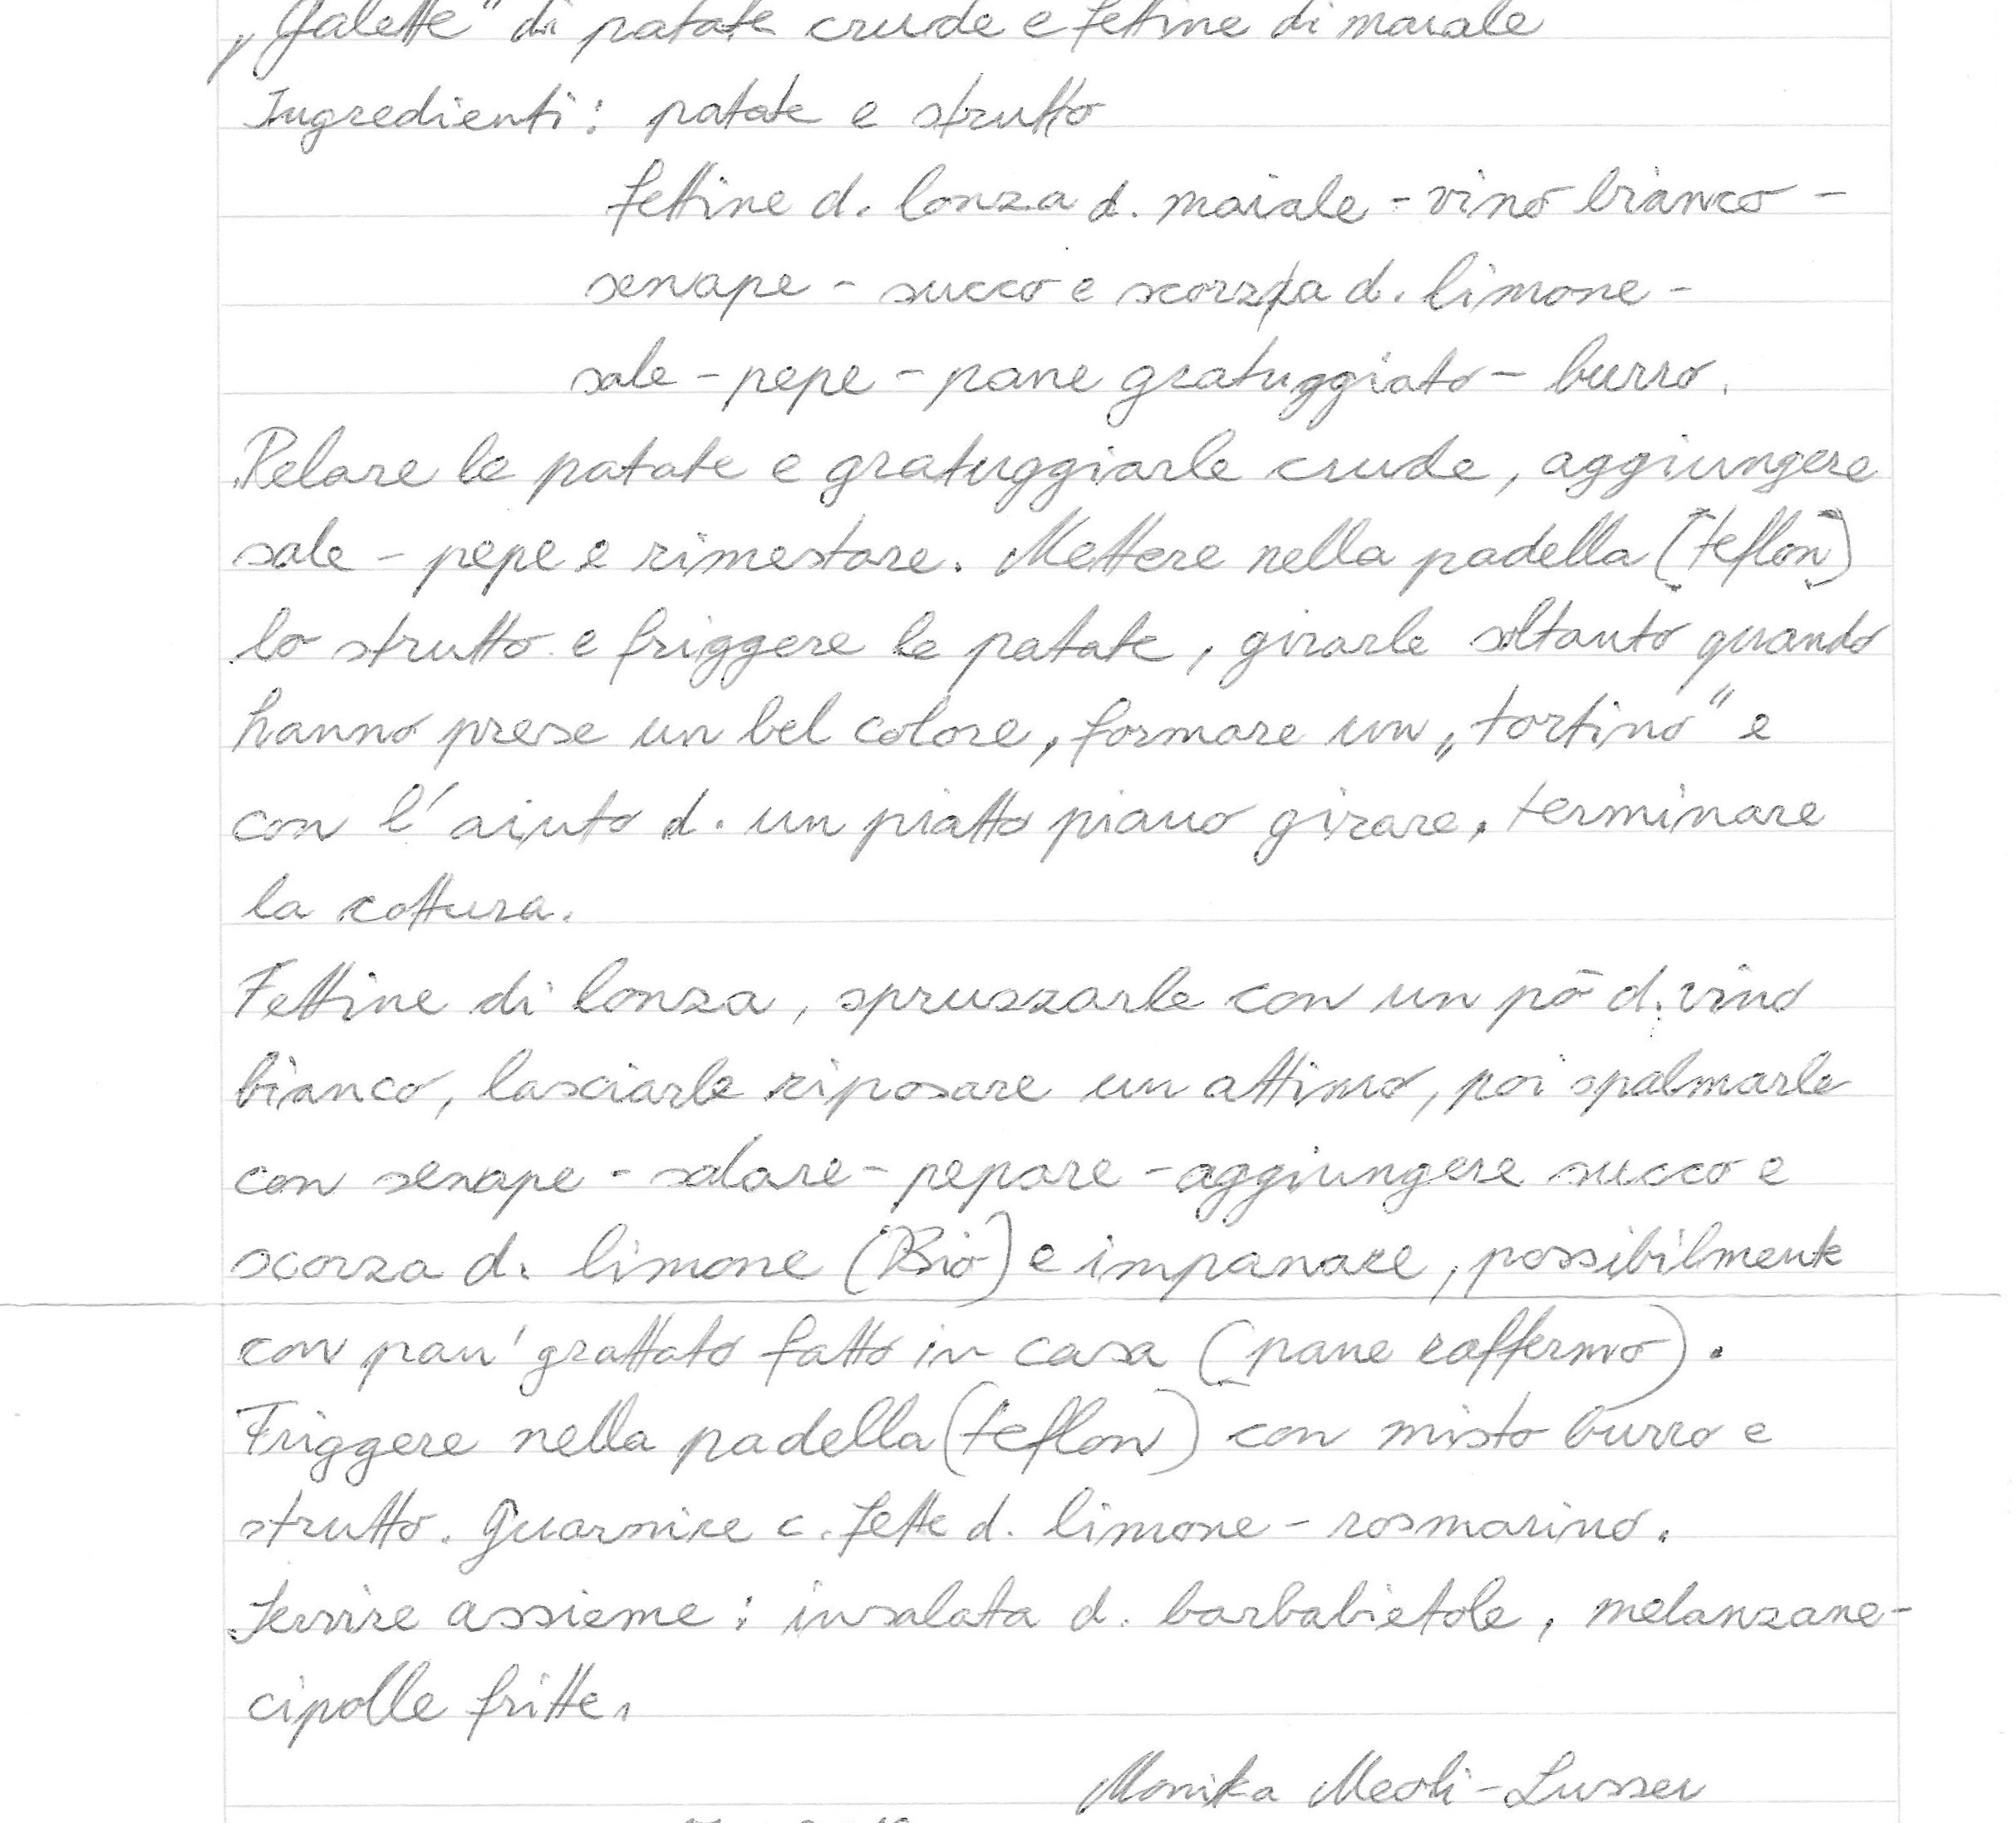 „Galette" di patate crude e fettine di maiale
Ingredienti: patate e strutto
fettine d. lonza d. maiale - vino bianco -
senape - succo e scorza d. limone -
sale - pepe - pane gratuggiato - burro.
Pelare le patate e gratuggiarle crude, aggiungere
sale - pepe e rimestare. Mettere nella padella (teflon)
lo strutto e friggere le patate, girarle soltanto quando
hanno prese un bel colore, formare un „tortino" e
con l'aiuto d. un piatto piano girare, terminare
la cottura.
Fettine di lonza, spruzzarle con un pò d. vino
bianco, lasciarle riposare un attimo, poi spalmarle
con senape - salare - pepare - aggiungere succo e
scorza d. limone (Bio) e impanare, possibilmente
con pan' grattato fatto in casa (pane raffermo).
Friggere nella padella (teflon) con misto burro e
strutto. Guarnire c. fette d. limone - rosmarino.
Servire assieme: insalata d. barbabietole, melanzane -
cipolle fritte.
Monika Meoli - Lusser